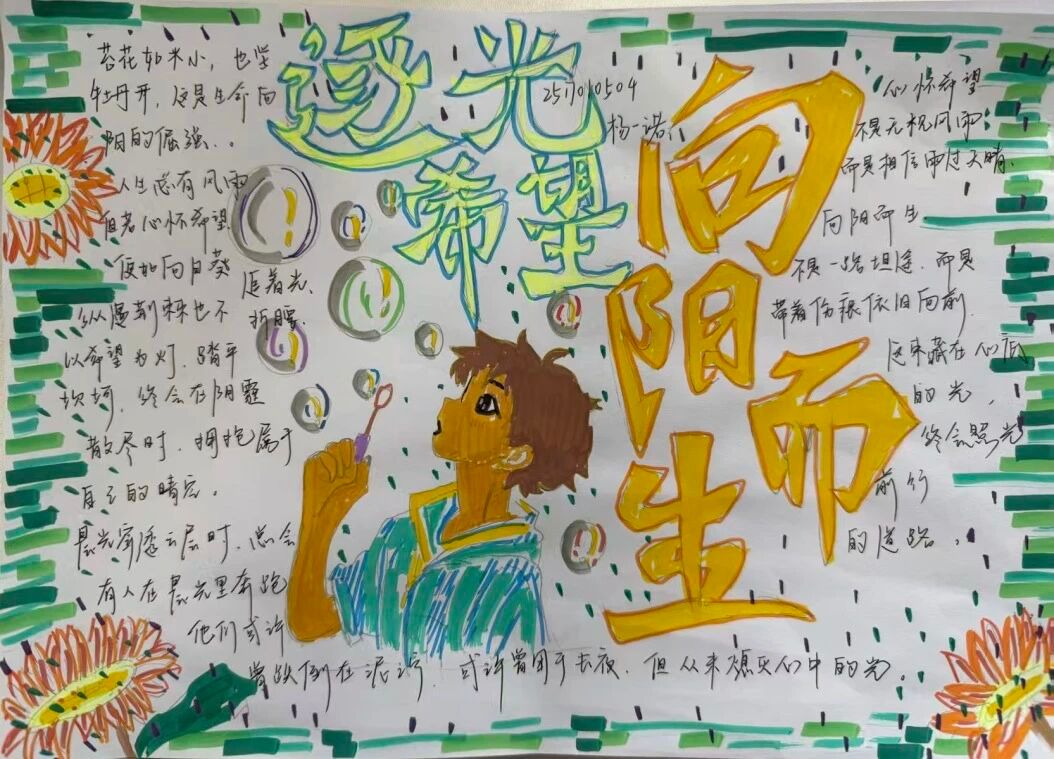 逐光
希望
向阳而生
2517010504
杨一诺
苔花如米小，也学
牡丹开，这是生命向
阳的倔强。
人生总有风雨
但若心怀希望
便如向日葵
追着光、
纵遇荆棘也不
折腰、
以希望为灯，踏平
坎坷，终会在阴霾
散尽时，拥抱属于
自己的晴空。
晨光穿透云层时，总会
有人在晨光里奔跑
他们或许
曾跌倒在泥泞，或许曾困于长夜，但从未熄灭心中的光。
心怀希望
不是无视风雨
而是相信雨过天晴、
向阳而生
不是一路坦途，而是
带着伤痕依旧向前
这束藏在心底
的光，
终会照亮
前行
的道路，